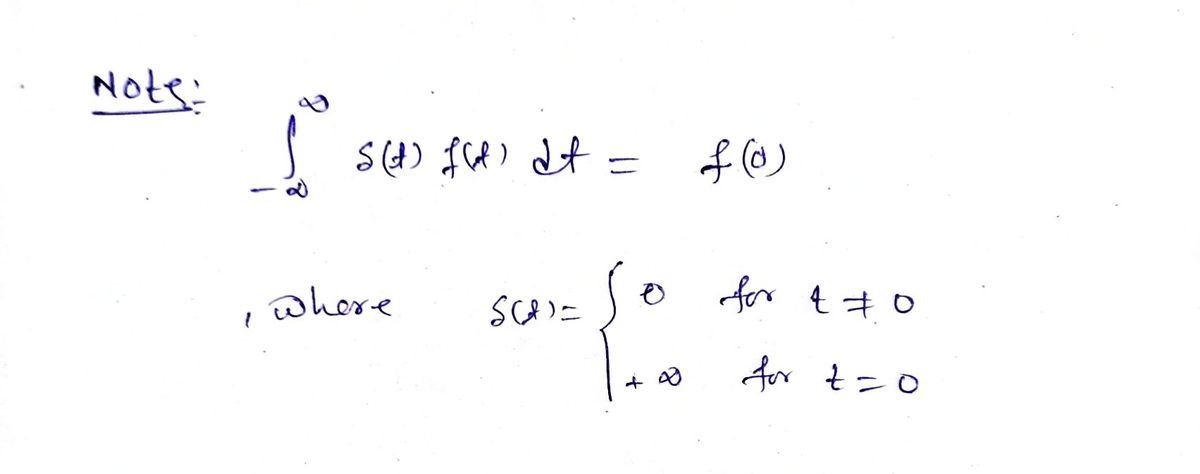 Note:
∫_{-∞}^{∞} δ(t) f(t) dt = f(0)
, where δ(t) = { 0 for t ≠ 0
+∞ for t = 0